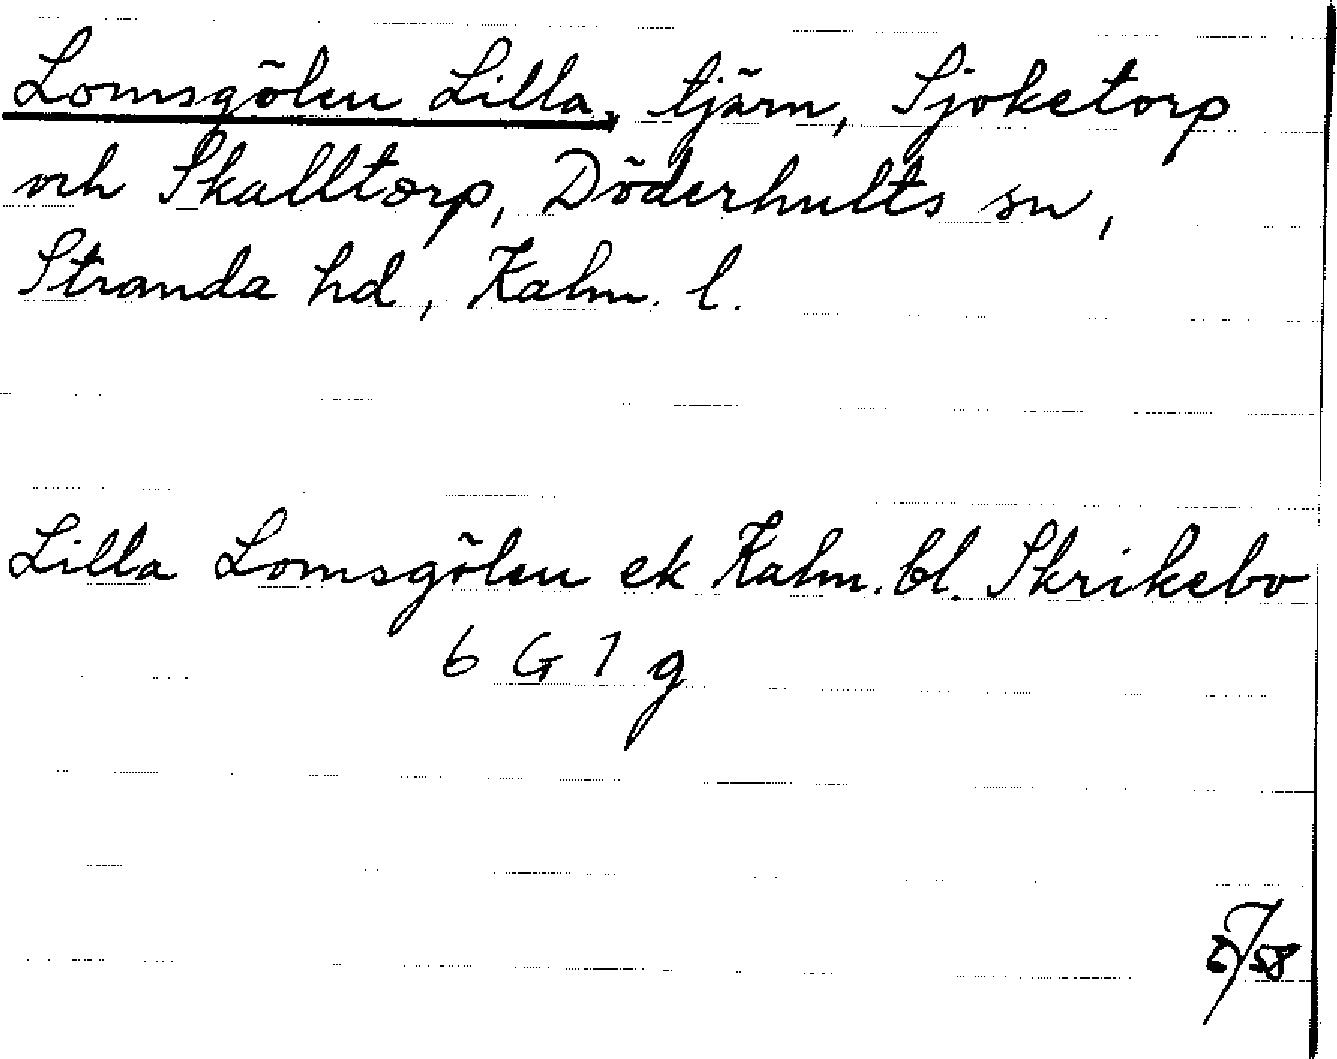 Lomsgölen Lilla, tjärn, Sjoketorp
och Skalltorp, Döderhults sn,
Stranda hd, Kalm. l.
Lilla Lomsgölen ek Kalm. bl. Skrikebo
6 G 1 g